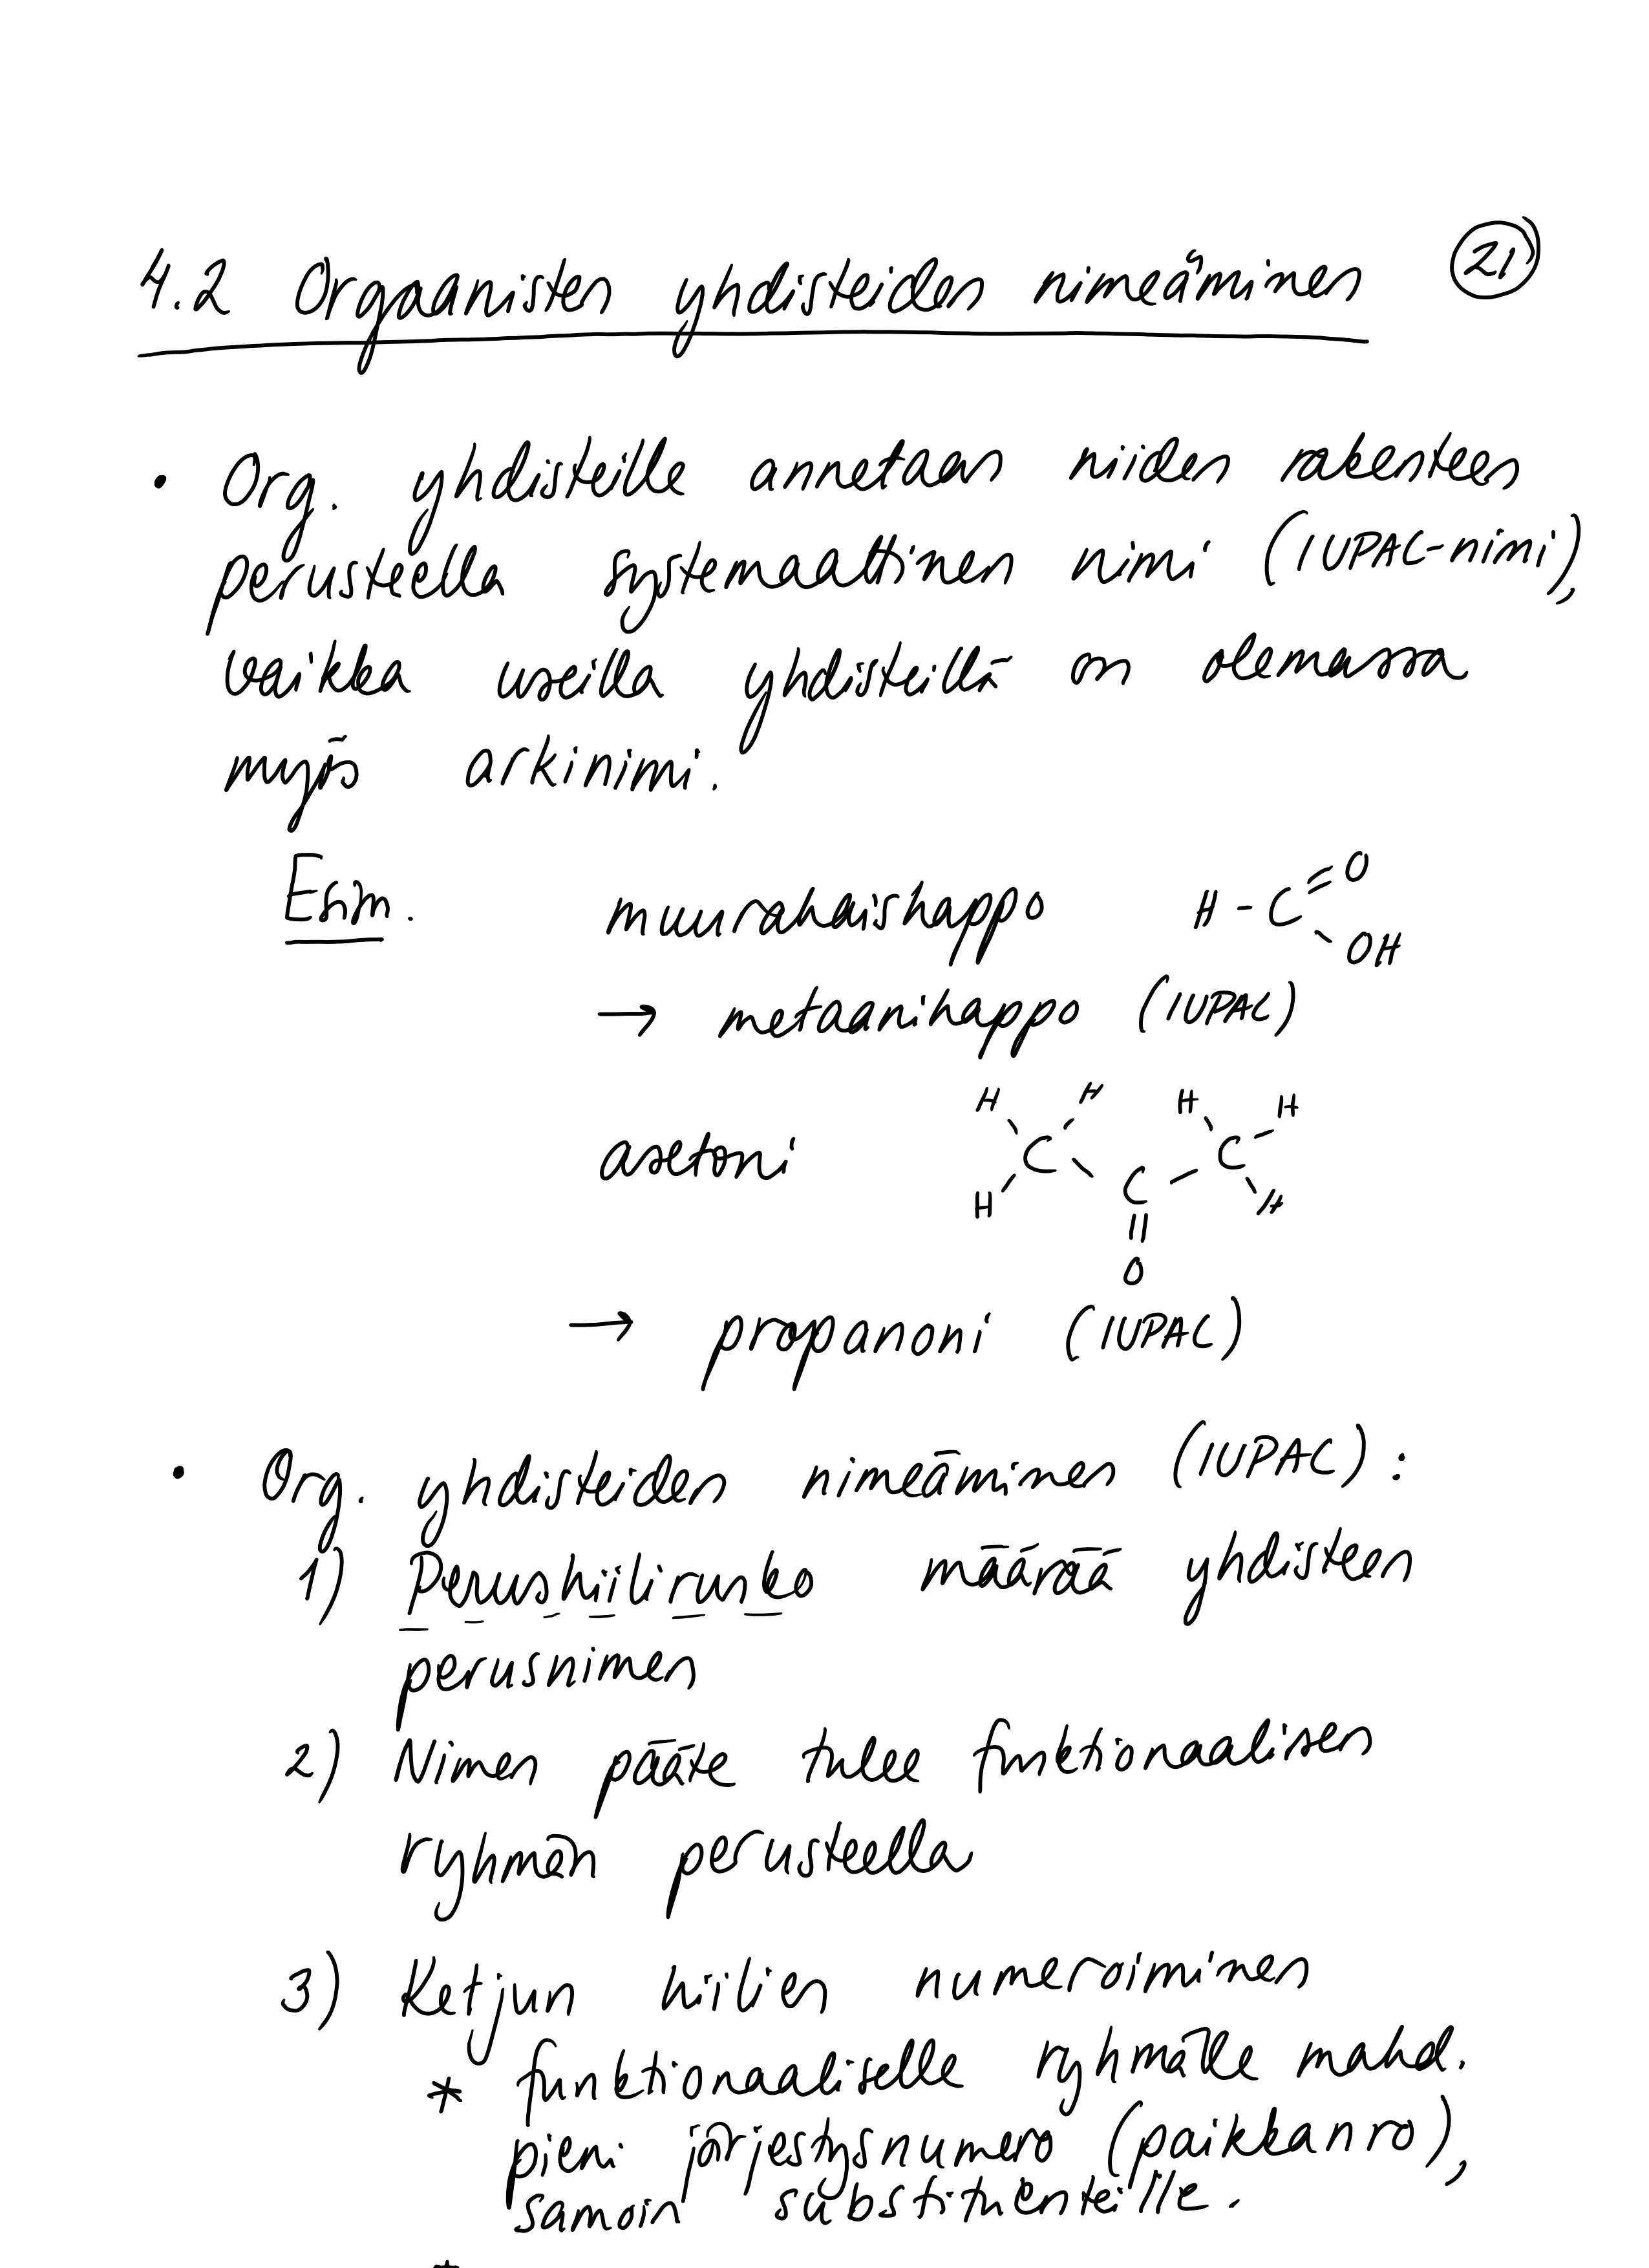 4.2 Orgaanisten yhdisteiden nimeäminen 21
• Org. yhdisteille annetaan niiden rakenteen
perusteella systemaattinen nimi (IUPAC-nimi),
vaikka useilla yhdisteillä on olemassa
myös arkinimi.
Esim. muurahaishappo H-C=O
-OH
→ metaanihappo (IUPAC)
H H H H
asetoni C - C - C
H H
||
O
→ propanoni (IUPAC)
• Org. yhdisteiden nimeäminen (IUPAC):
1) Perushiilirunko määrää yhdisteen
perusnimen
2) Nimen pääte tulee funktionaalisen
ryhmän perusteella
3) Ketjun hiilien numeroiminen
* funktionaaliselle ryhmälle mahd.
pieni järjestysnumero (paikkanro),
samoin substituenteille.
*